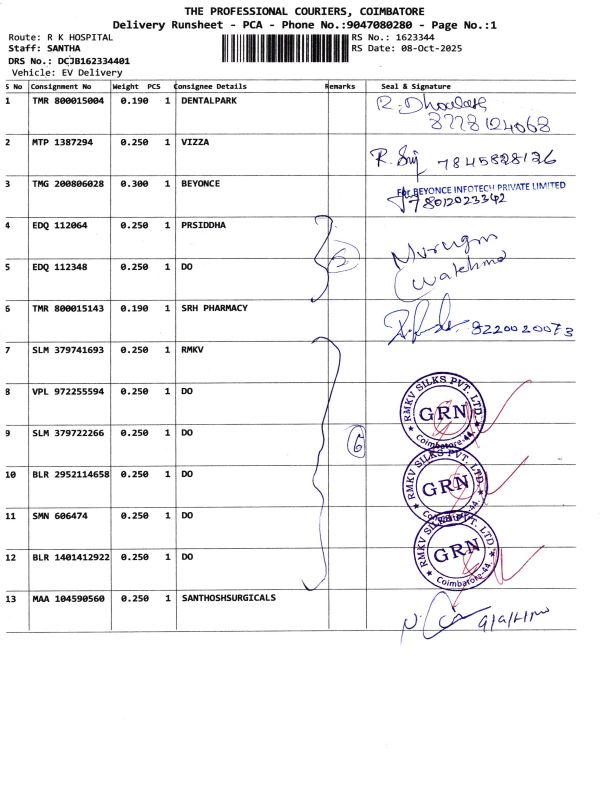 THE PROFESSIONAL COURIERS, COIMBATORE
Delivery Runsheet - PCA - Phone No.:9047080280 - Page No.:1
Route: R K HOSPITAL RS No.: 1623344
Staff: SANTHA RS Date: 08-Oct-2025
DRS No.: DCJB162334401
Vehicle: EV Delivery
S No Consignment No Weight PCS Consignee Details Remarks Seal & Signature
1 TMR 800015004 0.190 1 DENTALPARK
8778124068
2 MTP 1387294 0.250 1 VIZZA
7845828126
3 TMG 200806028 0.300 1 BEYONCE For BEYONCE INFOTECH PRIVATE LIMITED
78012023342
4 EDQ 112064 0.250 1 PRSIDDHA
Murugan
5 EDQ 112348 0.250 1 DO
6 TMR 800015143 0.190 1 SRH PHARMACY 8220020073
7 SLM 379741693 0.250 1 RMKV
8 VPL 972255594 0.250 1 DO RMKV SILKS PVT. LTD. GRN Coimbatore-44.
9 SLM 379722266 0.250 1 DO 6
10 BLR 2952114658 0.250 1 DO RMKV SILKS PVT. LTD. GRN
11 SMN 606474 0.250 1 DO
12 BLR 1401412922 0.250 1 DO RMKV SILKS PVT. LTD. GRN Coimbatore-44.
13 MAA 104590560 0.250 1 SANTHOSHSURGICALS